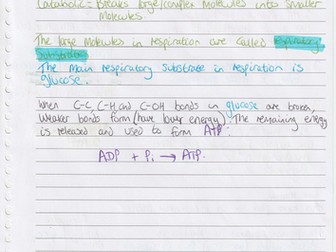 Catabolic = Breaks large/complex molecules into smaller
molecules.
The large molecules in respiration are called respiratory
substrates
The main respiratory substrate in respiration is
glucose.
When C-C, C-H, and C-OH bonds in glucose are broken,
weaker bonds form (have lower energy). The remaining energy
is released and used to form ATP:
ADP + Pi → ATP.